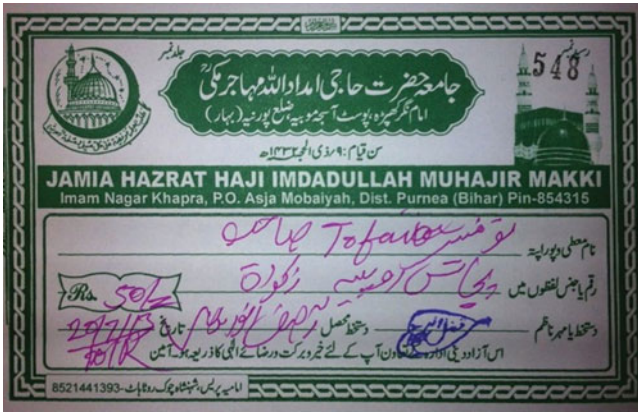 جلد نمبر
رسید نمبر
548
جامعہ حضرت حاجی امداد اللہ مہاجر مکیؒ
امام نگر کھپڑہ، پوسٹ آسجہ موبیہ، ضلع پورنیہ (بہار)
سن قیام: ۹؍ ذی الحجہ ۱۴۳۲ھ
JAMIA HAZRAT HAJI IMDADULLAH MUHAJIR MAKKI
Imam Nagar Khapra, P.O. Asja Mobaiyah, Dist. Purnea (Bihar) Pin-854315
نام معطی و پورا پتہ صاحب
رقم یا جنس لفظوں میں پچاس روپیہ زکوۃ
Rs. 50/-
دستخط یا مہر ناظم دستخط محصل تاریخ 20/7/13
اس آزاد دینی ادارہ کے تعاون آپ کے لئے خیر و برکت و رضائے الٰہی کا ذریعہ ہو۔ آمین
امامیہ پریس، شہنشاہ چوک روٹا ہاٹ-8521441393